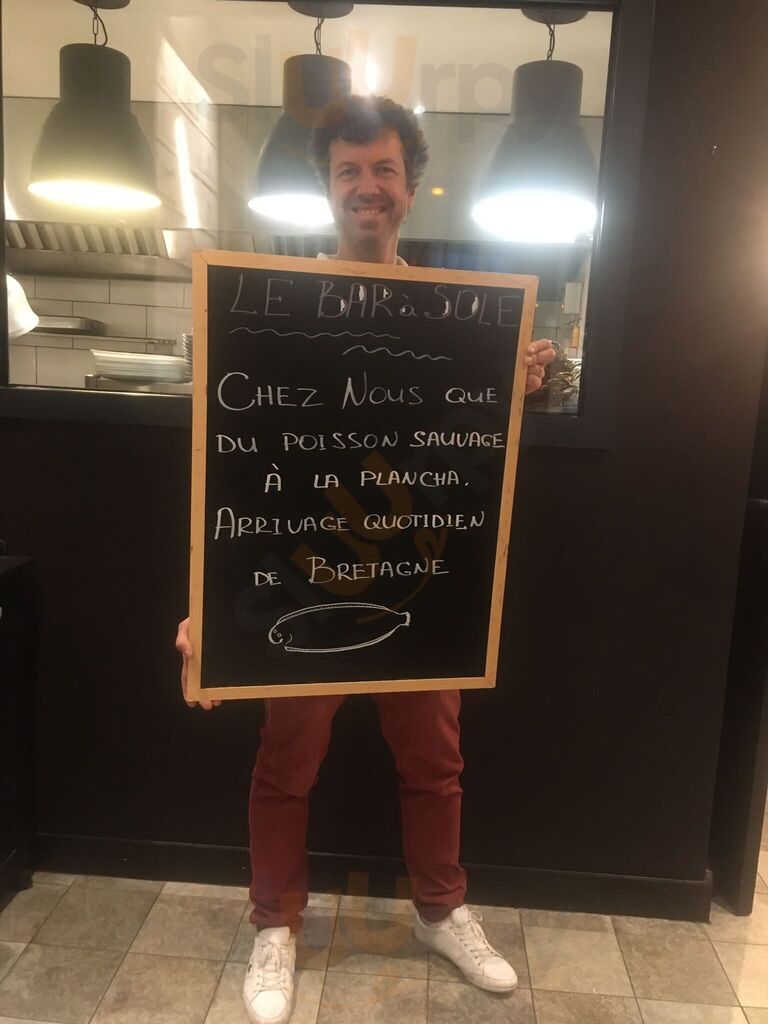 LE BAR à SOLE
CHEZ NOUS QUE
DU POISSON SAUVAGE
À LA PLANCHA.
ARRIVAGE QUOTIDIEN
DE BRETAGNE
Sluurpy
Sluurpy